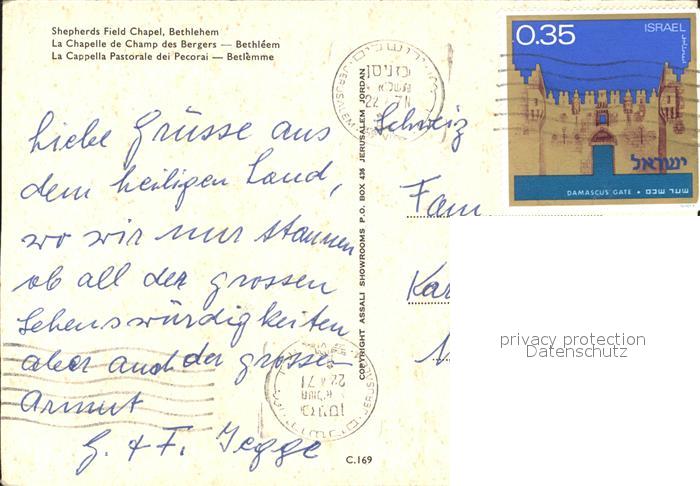 Shepherds Field Chapel, Bethlehem
La Chapelle de Champ des Bergers — Bethléem
La Cappella Pastorale dei Pecorai — Betlèmme
liebe Grüsse aus
dem heiligen Land,
wo wir nur staunen
ob all der grossen
Sehenswürdigkeiten
aber auch der grossen
Armut
G. + F. Jegge
COPYRIGHT ASSALI SHOWROOMS P.O. BOX 436 JERUSALEM JORDAN
C.169
JERUSALEM
כז ניסן
22 71
JERUSALEM
22 71
0.35
ISRAEL
ישראל
DAMASCUS GATE • שער שכם
Schweiz
Fam
Kar
privacy protection
Datenschutz